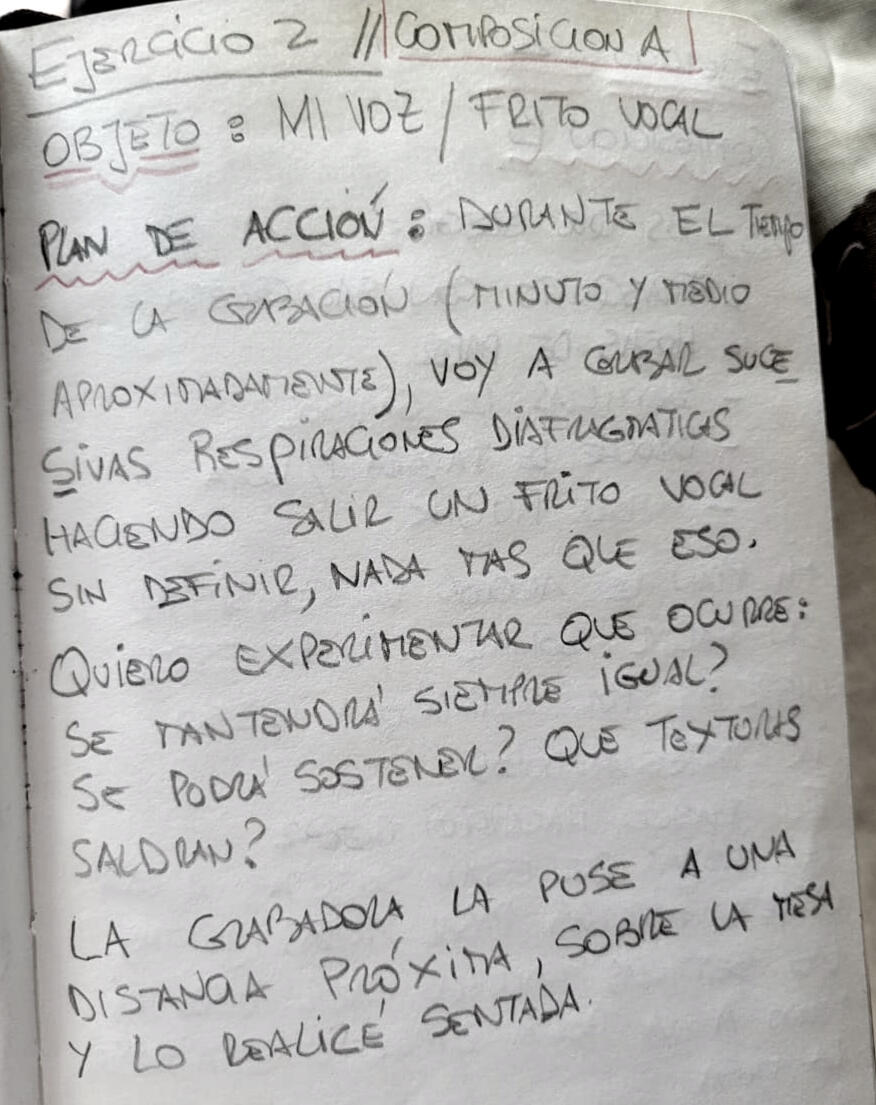 EJERCICIO 2 // COMPOSICION A |
OBJETO : MI VOZ / FRITO VOCAL
PLAN DE ACCIÓN : DURANTE EL TIEMPO
DE LA GRABACIÓN (MINUTO Y MEDIO
APROXIMADAMENTE), VOY A GRABAR SUCE
SIVAS RESPIRACIONES DIAFRAGMATICAS
HACIENDO SALIR UN FRITO VOCAL
SIN DEFINIR, NADA MAS QUE ESO.
QUIERO EXPERIMENTAR QUE OCURRE:
SE MANTENDRÁ SIEMPRE IGUAL?
SE PODRÁ SOSTENER? QUE TEXTURAS
SALDRAN?
LA GRABADORA LA PUSE A UNA
DISTANCIA PRÓXIMA, SOBRE LA MESA
Y LO REALICÉ SENTADA.